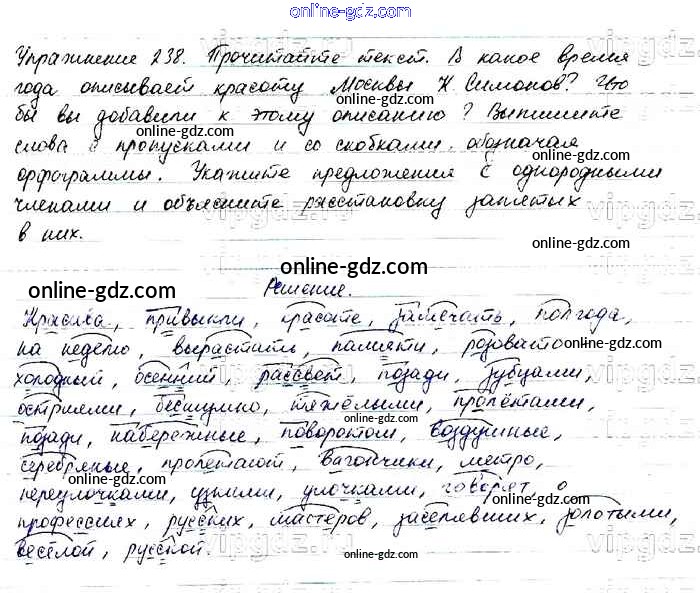 online-gdz.com
online-gdz.com
Упражнение 238. Прочитайте текст. В какое время
года описывает красоту Москвы К. Симонов? Что
бы вы добавили к этому описанию? Выпишите
слова с пропусками и со скобками, обозначая
орфограммы. Укажите предложения с однородными
членами и объясните расстановку запятых
в них.
Решение.
Красива, привыкли, красоте, замечать, полгода,
на неделю, вырастить, памяти, розовато
холодный, осенний, рассвет, позади, зубцами,
остриями, бесшумно, тяжёлыми, пролётами,
позади, набережные, поворотом, воздушные,
серебряные, пролетают, вагончики, метро,
переулочками, узкими, улочками, говорят, о
профессиях, русских, мастеров, заселявших, золотыми,
весёлой, русской.
online-gdz.com
online-gdz.com
online-gdz.com
online-gdz.com
online-gdz.com
online-gdz.com
online-gdz.com
online-gdz.com
online-gdz.com
online-gdz.com
online-gdz.com
online-gdz.com
online-gdz.com
vipgdz
vipgdz
vipgdz
vipgdz